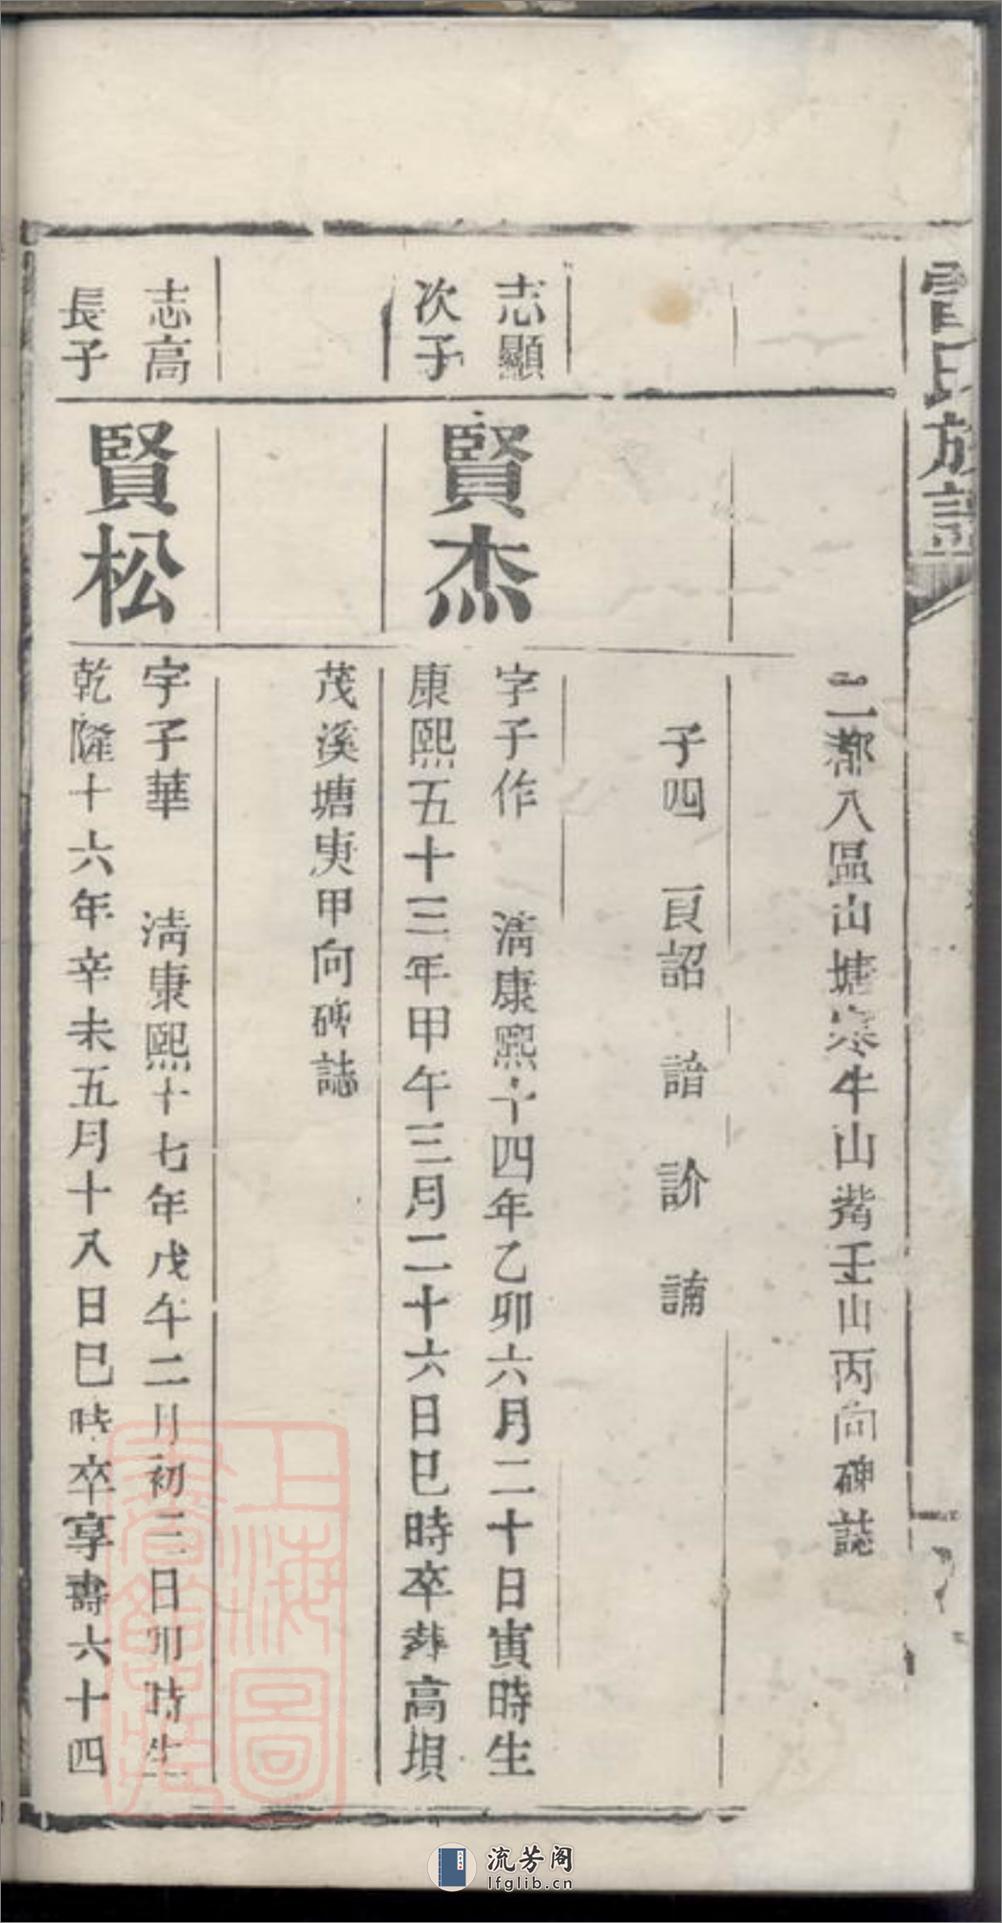 氏族譜
二都八區山塘寒牛山觜壬山丙向碑誌
子四 良詔 諳 諭 誦
志顯
次子
賢杰
字子作 清康熙十四年乙卯六月二十日寅時生
康熙五十三年甲午三月二十六日巳時卒葬高垻
茂溪塘庚甲向碑誌
志高
長子
賢松
字子華 清康熙十七年戊午二月初三日卯時生
乾隆十六年辛未五月十八日巳時卒享壽六十四
上海圖
書館藏
流芳阁
lfglib.cn